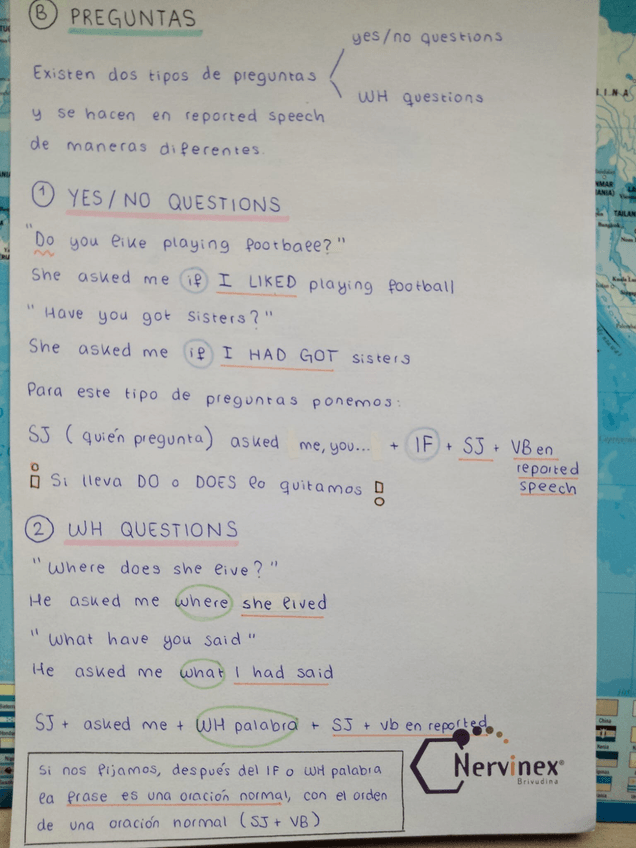 B PREGUNTAS
yes/no questions
Existen dos tipos de preguntas
WH questions
y se hacen en reported speech
de maneras diferentes.
1 YES/NO QUESTIONS
"Do you like playing football?"
She asked me if I LIKED playing football
"Have you got sisters?"
She asked me if I HAD GOT sisters
Para este tipo de preguntas ponemos:
SJ (quién pregunta) asked me, you... + IF + SJ + VB en
reported
speech
¡Si lleva DO o DOES lo quitamos!
2 WH QUESTIONS
"Where does she live?"
He asked me where she lived
"What have you said"
He asked me what I had said
SJ + asked me + WH palabra + SJ + vb en reported
Si nos fijamos, después del IF o WH palabra
la frase es una oración normal, con el orden
de una oración normal (SJ + VB)
Nervinex®
Brivudina
LINA
TAILAN
China